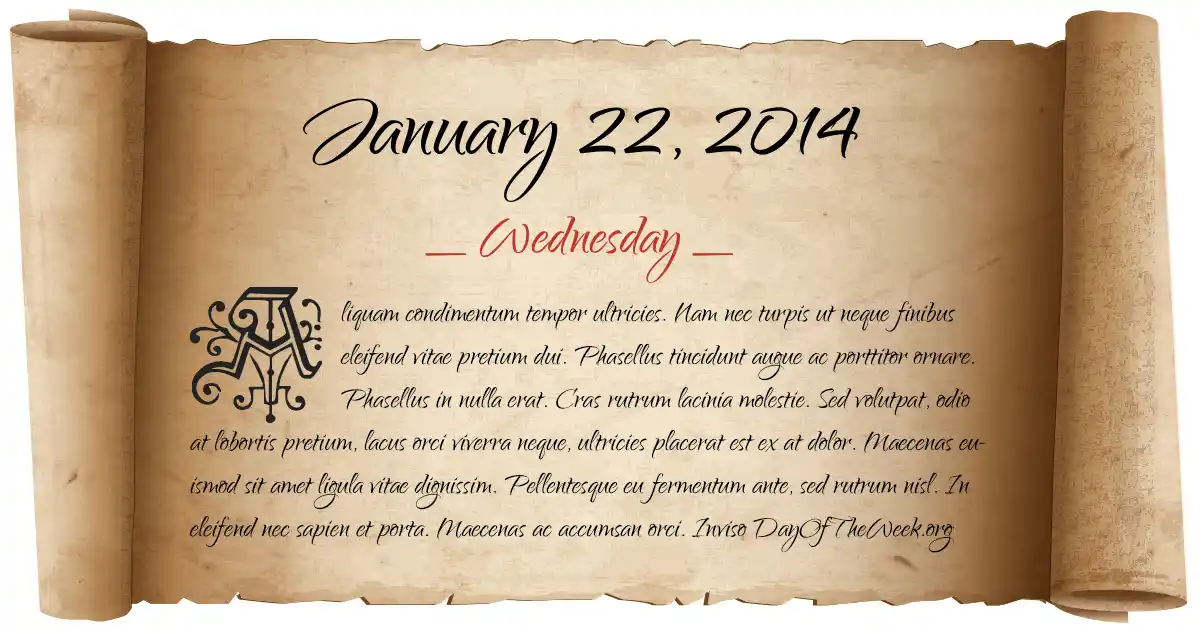 January 22, 2014
__ Wednesday __
Aliquam condimentum tempor ultricies. Nam nec turpis ut neque finibus
eleifend vitae pretium dui. Phasellus tincidunt augue ac porttitor ornare.
Phasellus in nulla erat. Cras rutrum lacinia molestie. Sed volutpat, odio
at lobortis pretium, lacus orci viverra neque, ultricies placerat est ex at dolor. Maecenas eu-
ismod sit amet ligula vitae dignissim. Pellentesque eu fermentum ante, sed rutrum nisl. In
eleifend nec sapien et porta. Maecenas ac accumsan orci. Inviso DayOfTheWeek.org